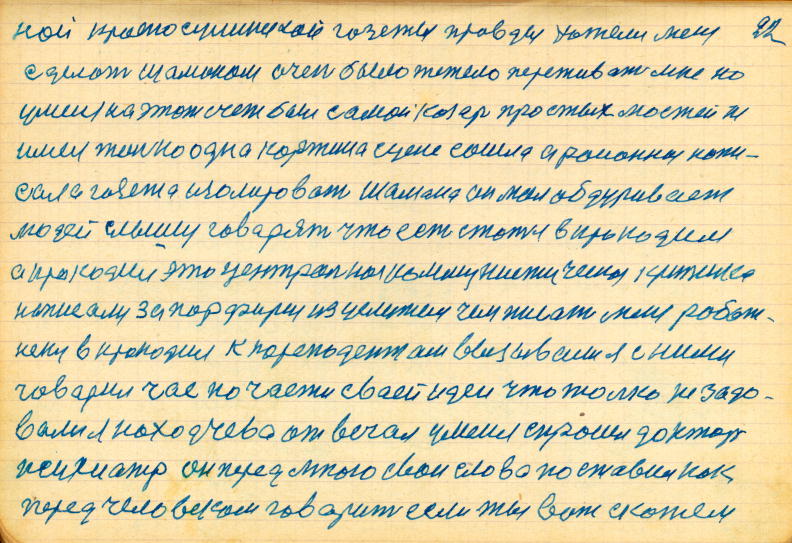 ной красносулинской газеты правды хотели меня 92
сделат шаманом очен было тежело переживат мне но
умея на этот счет был самой козар простых мостей и
имел толко одна картина сцене сошла а раионня напи-
сала газета изолироват шамана он мол обдуривает
людей слышу говарят что ест статя в крокодил
а крокодил это централная коммунистическая критика
написали за порфирия из целител читват меня работ-
неки в крокодил к кореподентам визывали я с ними
говарил час по части сваей идеи что толко не задо-
вали я находчева отвечал у меня спросил доктор
психиатр он перед мною свои слова поставил как
перед человеком говарит если ты вот скажем